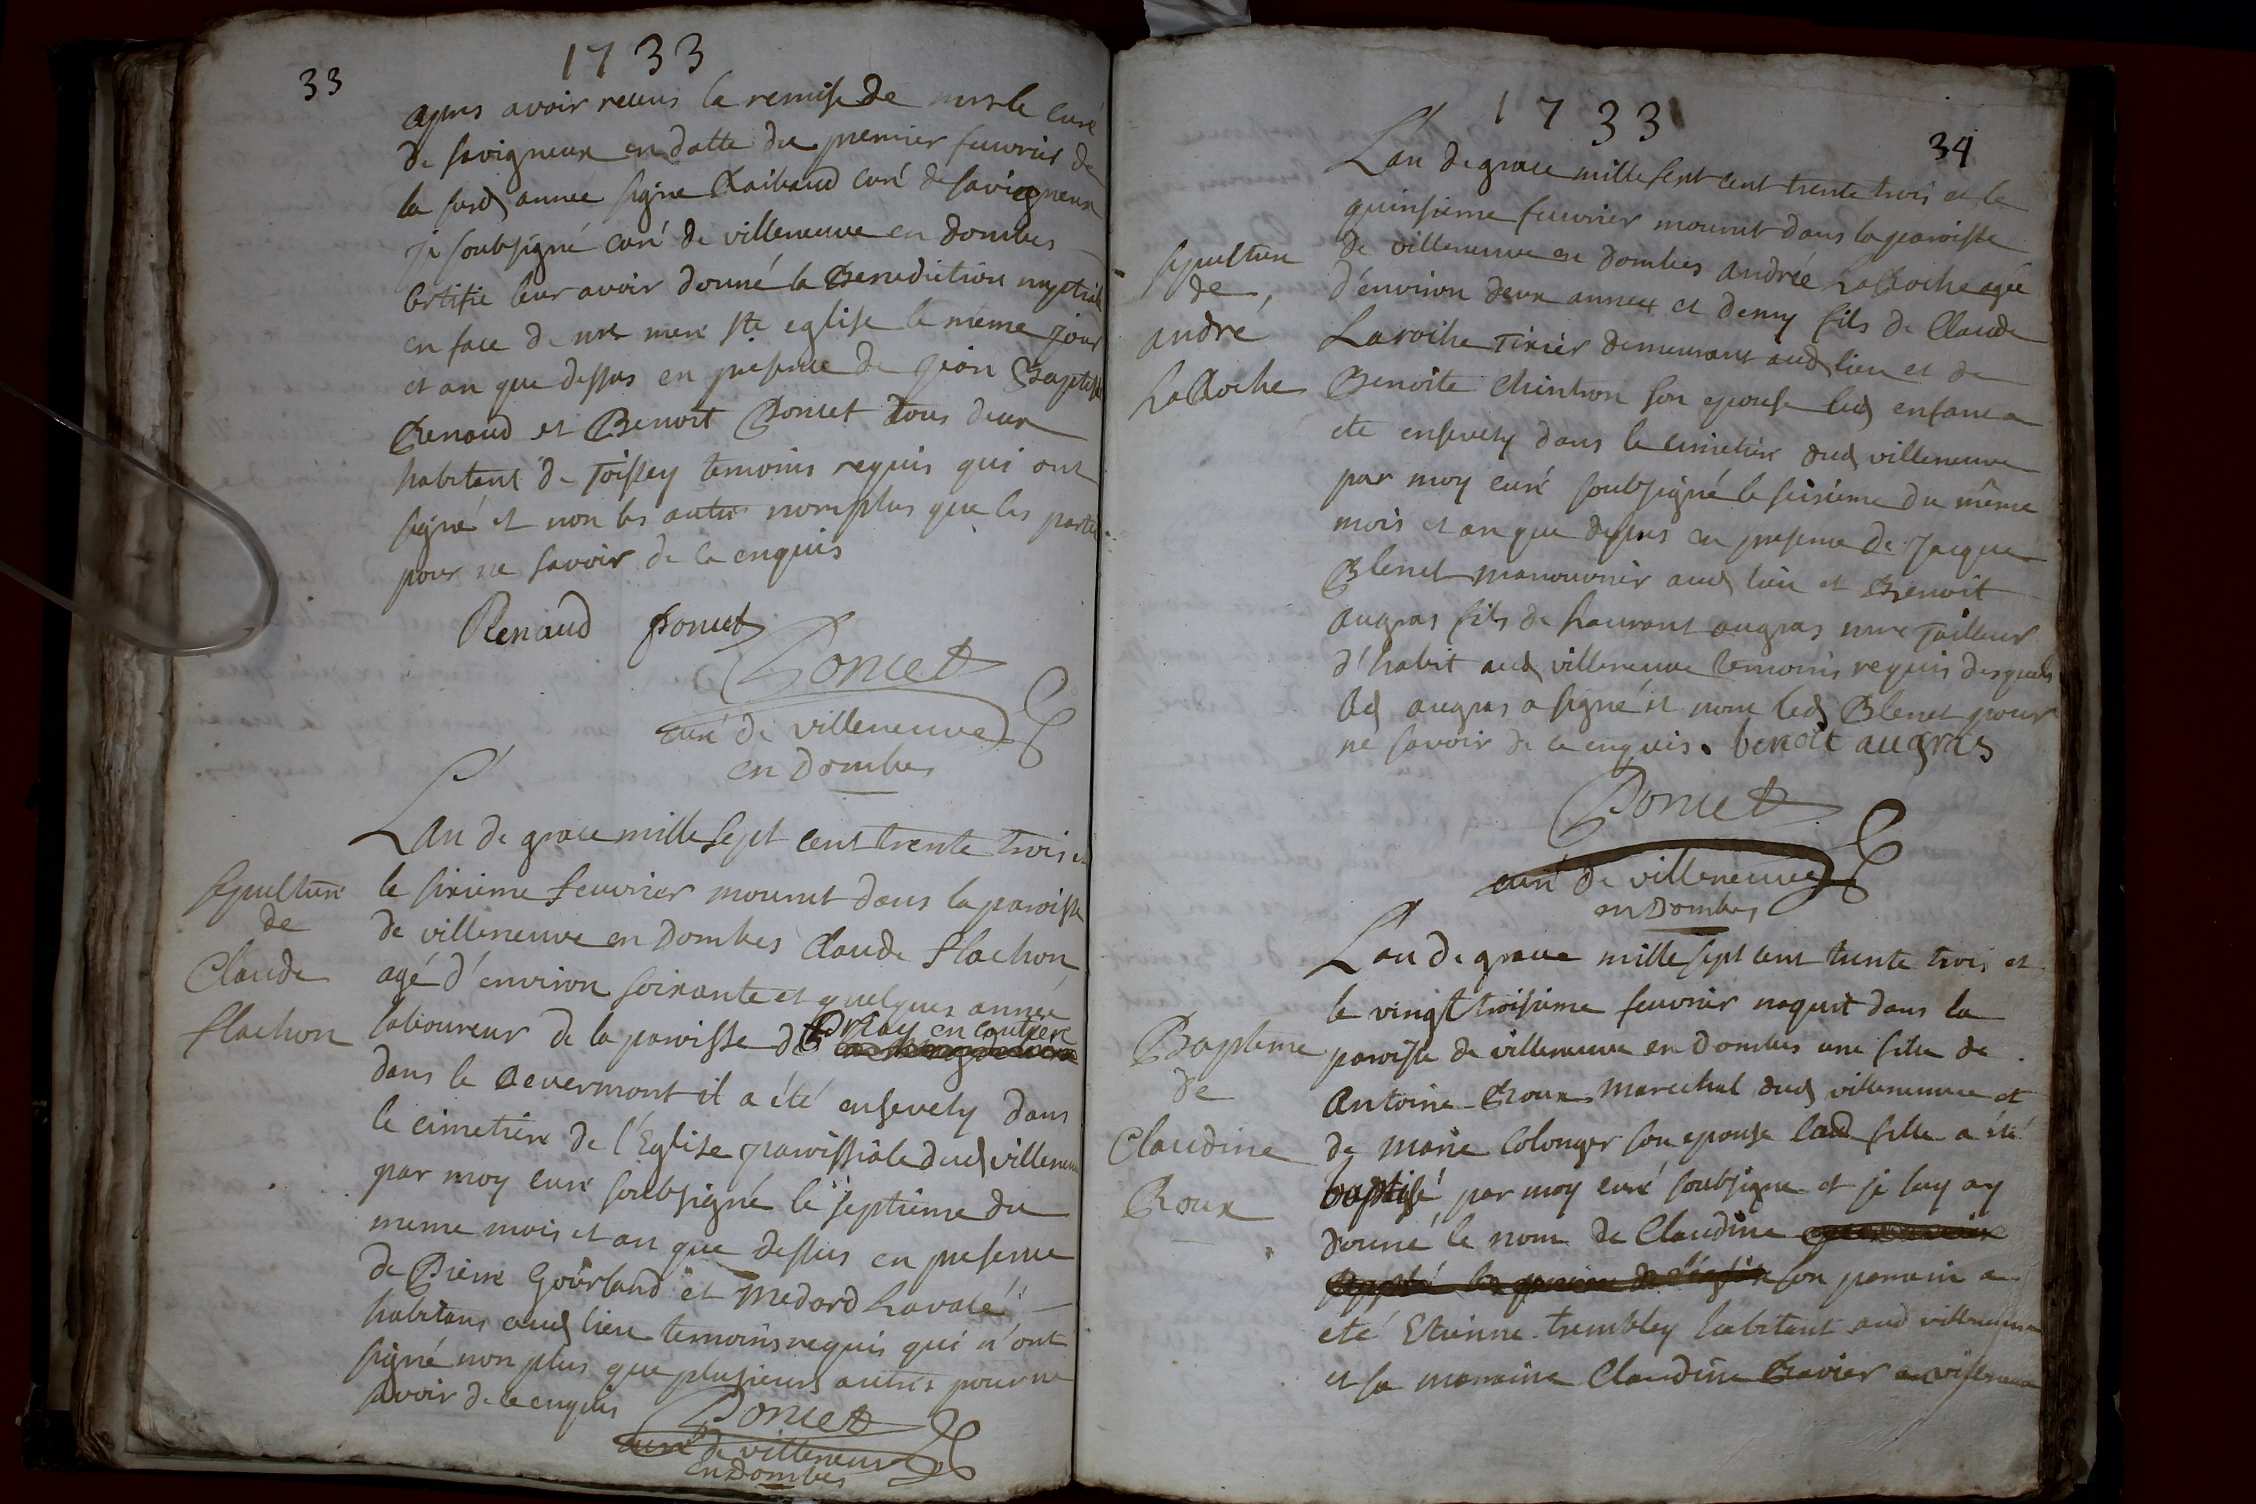 1733
33
apres avoir receus la remise de mr le curé
de savigneux en datte du premier feuvrier de
la susd annee signe Raibaud curé de savigneux
je soubsigné curé de villeneuve en dombes
certifie leur avoir donné la Benediction nuptiale
en face de nre mere ste eglise le meme jour
et an que dessus en presence de jean Baptiste
Renaud et Benoit Poncet tous deux
habitent de Toissey temoins requis qui ont
signé et non les autre nomplus que les partie
pour ne savoir de ce enquis
Renaud poncet
Poncet
curé de villeneuve
en Dombes
Sepulture
de
Claude
flachon
L'an de grace mille sept cent trente trois et
le sixieme feuvrier mourut dans la paroisse
de villeneuve en Dombes Claude flachon
agé d'environ soixante et quelques année
laboureur de la paroisse de
dans le Revermont il a été ensevely dans
le cimetiere de l'Eglise paroissiale dud villeneuve
par moy curé soubsigné le septieme du
meme mois et an que dessus en presence
de Pierre Gourland et Medard Lavale
habitans aud lieu temoins requis qui n'ont
signé non plus que plusieurs autres pour ne
savoir de ce enquis
Poncet
curé de villeneuve
en Dombes
1733
34
sepulture
de
andré
LaRoche
L'an de grace mille sept cent trente trois et le
quinsieme feuvrier mourut dans la paroisse
de villeneuve en Dombes andrée LaRoche agé
d'environ deux annees et demy fils de Claude
Laroche Tixier demeurant aud lieu et de
Benoite Chintron son epouse led enfant a
ete ensevely dans le cimetier dud villeneuve
par moy curé soubsigné le seisieme du même
mois et an que dessus en presence de jacque
Blenet manouvrier aud lieu et Benoit
augras fils de Laurant augras mre Tailleur
d'habit aud villeneuve temoins requis desquels
led augras a signé et nom led Blenet pour
ne savoir de ce enquis. benoit augras
Poncet
curé de villeneuve
en Dombes
Baptême
de
Claudine
Roux
L'an de grace mille sept cent trente trois et
le vingt troisieme feuvrier naquit dans la
paroisse de villeneuve en Dombes une fille de
Antoine Roux marechal dud villeneuve et
de marie Colonger son epouse lad fille a été
baptisé par moy curé soubsigne et je luy ay
donné le nom de Claudine
son parrain a
eté Etienne trembley habitent aud villeneuve
et sa marraine Claudine Ravier